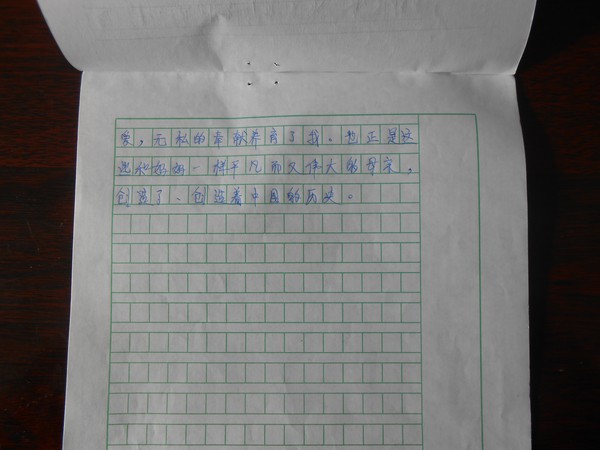 爱，无私的奉献养育了我。也正是这
些和妈妈一样平凡而又伟大的母亲，
创造了、创造着中国的历史。